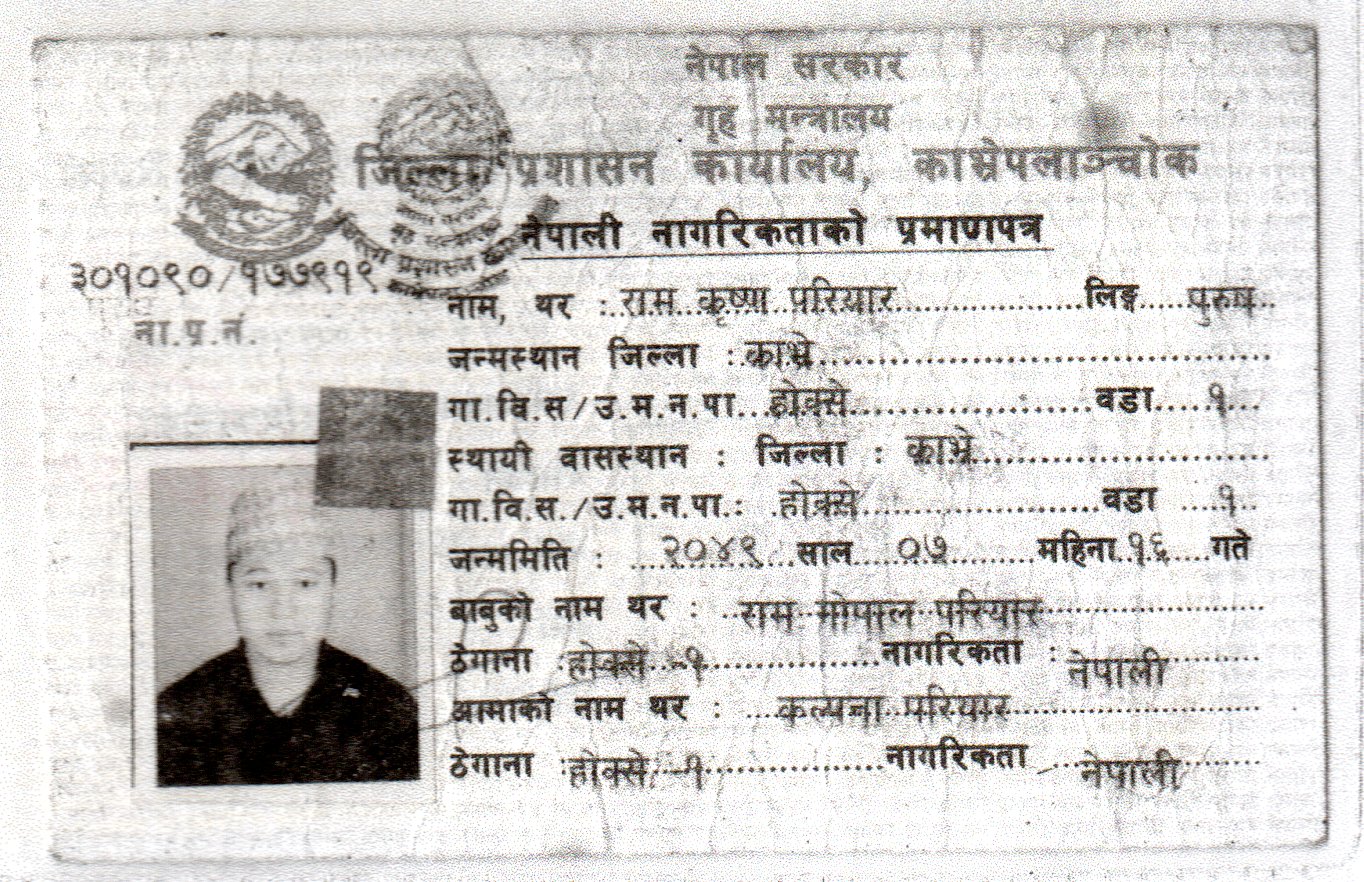 नेपाल सरकार
गृह मन्त्रालय
जिल्ला प्रशासन कार्यालय, काभ्रेपलाञ्चोक
नेपाली नागरिकताको प्रमाणपत्र
३०१०९०/१७७९१९
ना.प्र.नं.
नाम, थर : राम कृष्ण परियार लिङ्ग पुरुष
जन्मस्थान जिल्ला : काभ्रे
गा.वि.स/उ.म.न.पा. होक्से वडा १
स्थायी वासस्थान : जिल्ला : काभ्रे
गा.वि.स./उ.म.न.पा.: होक्से वडा १
जन्ममिति : २०४९ साल ०७ महिना १६ गते
बाबुको नाम थर : राम गोपाल परियार
ठेगाना : होक्से -१ नागरिकता : नेपाली
आमाको नाम थर : कल्पना परियार
ठेगाना : होक्से -१ नागरिकता नेपाली